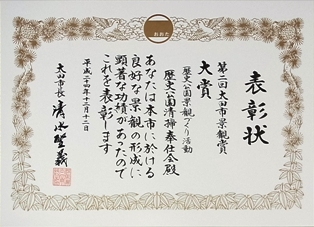 おおた
表彰状
第二回太田市景観賞
大賞
(歴史公園景観づくり活動)
歴史公園清掃奉仕会殿
あなたは本市に於ける
良好な景観の形成に
顕著な功績があったので
これを表彰します
平成二十四年十二月十二日
太田市長 清水聖義